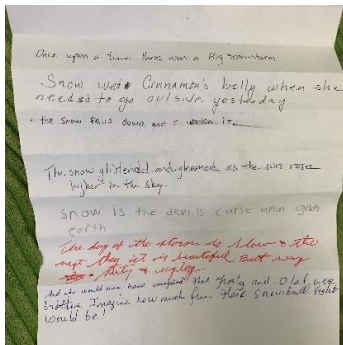 Once upon a time there was a Big snowstorm
Snow wets Cinnamon's belly when she
needed to go outside yesterday
the snow falls down and I it
The snow glittered and gleamed as the sun rose
higher in the sky.
Snow is the devils curse upon gods
earth
The day of the storm is slow & the
next they it is beautiful But very
dirty & ugly.
And who would ever have imagined that and Olaf were
brothers. Imagine how much fun their snowball fight
would be!